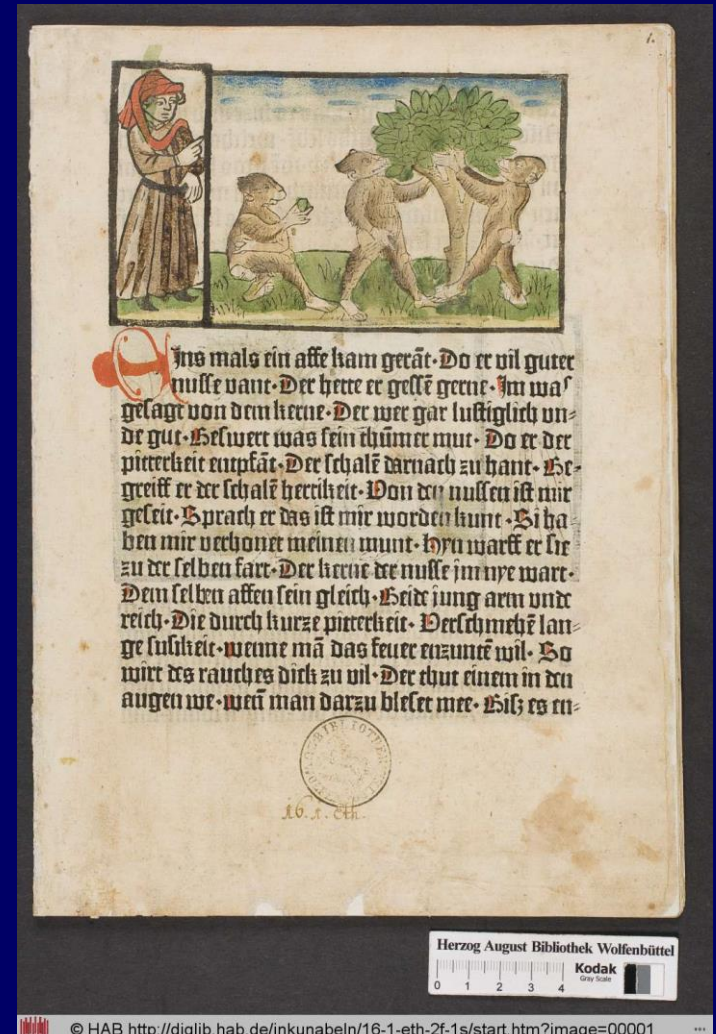 1.
EIns mals ein affe kam gerāt· Do er vil guter
nusse vant· Der hette er gessē gerne· Im was
gesagt von dem kerne· Der wer gar lustiglich vn⸗
de gut· Beswert was sein thūmer mut· Do er der
pitterkeit entpfāt· Der schalē darnach zu hant· Be⸗
greiff er der schalē herrikeit· Von den nussen ist mir
geseit· Sprach er das ist mir worden kunt· Si ha
ben mir verhonet meinen munt· Hyn warff er sie
zu der selben fart· Der kerne der nusse jm nye wart·
Dem selben affen sein gleich· Beide jung arm vnde
reich· Die durch kurze pitterkeit· Verschmehē lan⸗
ge susikeit· wenne mā das feuer enzuntē wil· So
wirt des rauches dick zu vil· Der thut einem in den
augen we· wen̄ man darzu bleset mee· Bisz es en⸗
16. 1. eth.
Herzog August Bibliothek Wolfenbüttel
0 1 2 3 4
Kodak
Gray Scale
© HAB http://diglib.hab.de/inkunabeln/16-1-eth-2f-1s/start.htm?image=00001